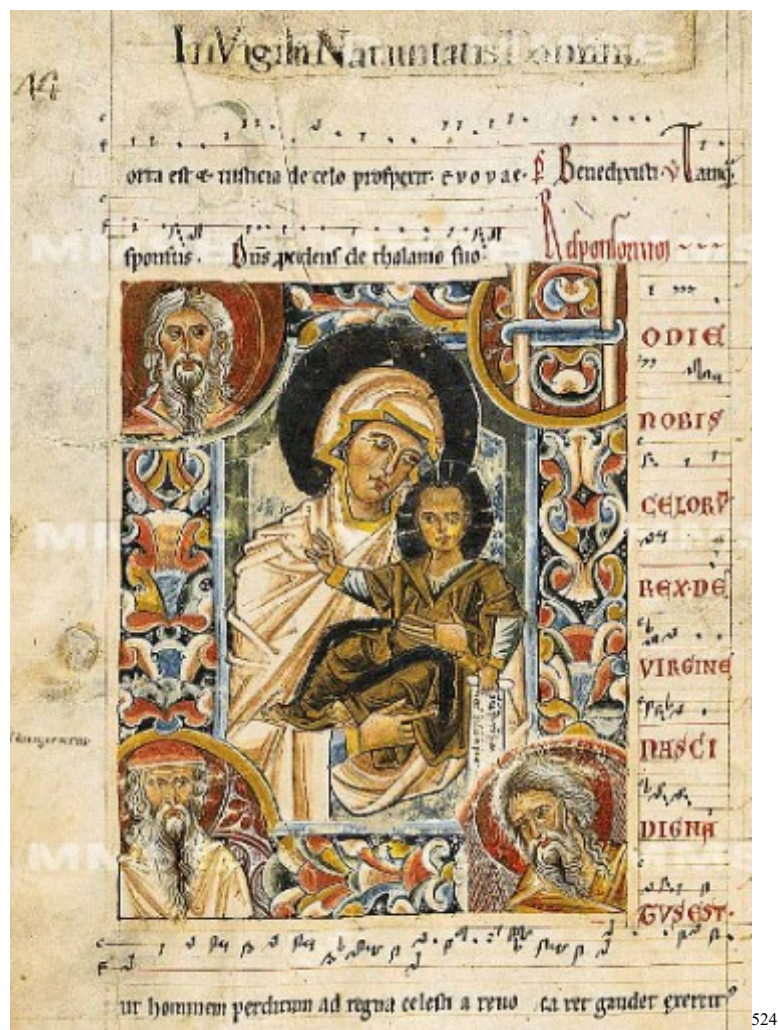 In Vigilia Natiuitatis Domini
orta est & iusticia de celo prospexit· e v o v a e· Benedixisti· Tamq̃
sponsus· Dn̄s p̱cedens de thalamo suo·
Responsorios
ODIE
NOBIS
CELORꝜ
REX·DE
VIRGINE
NASCI
DIGNA
TVS EST·
ut hominem perditum ad regna celestia reuo ca ret gaudet exercit⁹
524